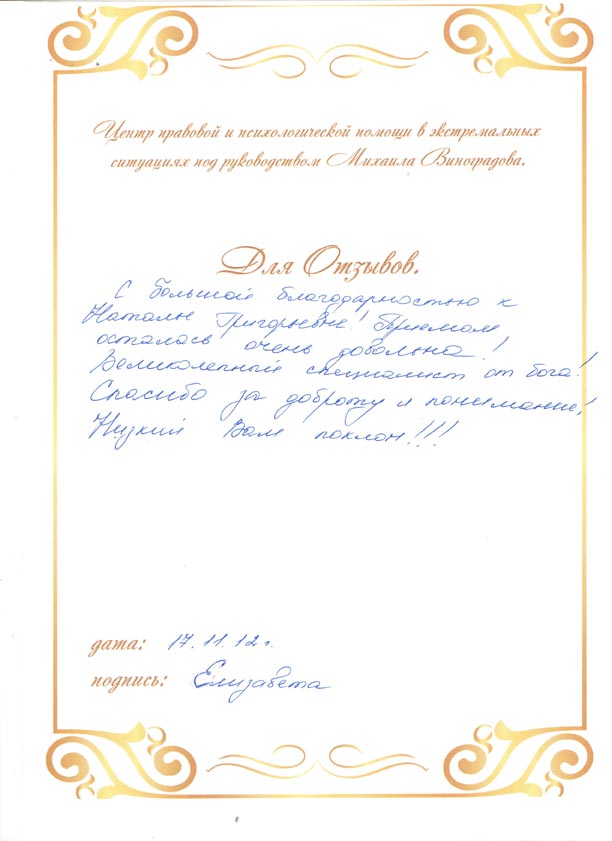 Центр правовой и психологической помощи в экстремальных
ситуациях под руководством Михаила Виноградова.
Для Отзывов.
С большой благодарностью к
Наталье Григорьевне! Приемом
осталась очень довольна!
Великолепный специалист от бога!
Спасибо за доброту и понимание!
Низкий Вам поклон!!!
дата: 17.11.12 г.
подпись: Елизавета